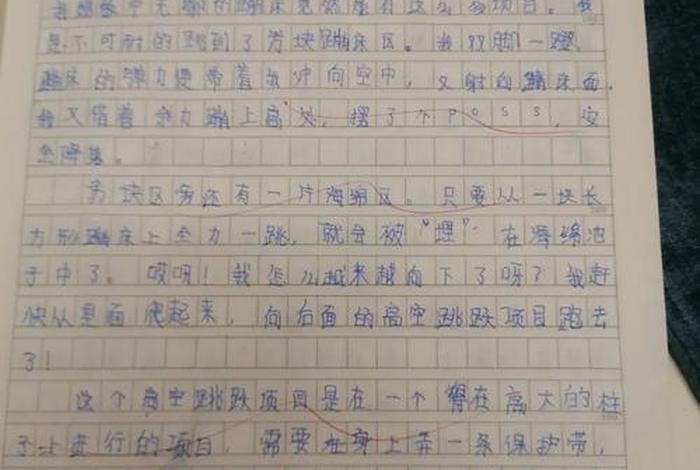 我想象中无聊的蹦床竟然还有这么多项目。我
急不可耐的跳到了方块蹦床区。我双脚一蹬,
蹦床的弹力便带着我冲向空中,又射向蹦床面,
我又借着余力蹦上高处,摆了个poss,安
全降落。
方块区旁还有一片海绵区。只要从一块长
方形蹦床上全力一跳,就会被“埋”在海绵池
子中了。哎呀!我怎么越来越向下了呀?我赶
快从里面爬起来,向后面的高空跳跃项目跑去
了!
这个高空跳跃项目是在一个 在高大的柱
子上进行的项目,需要在身上弄一条保护带,